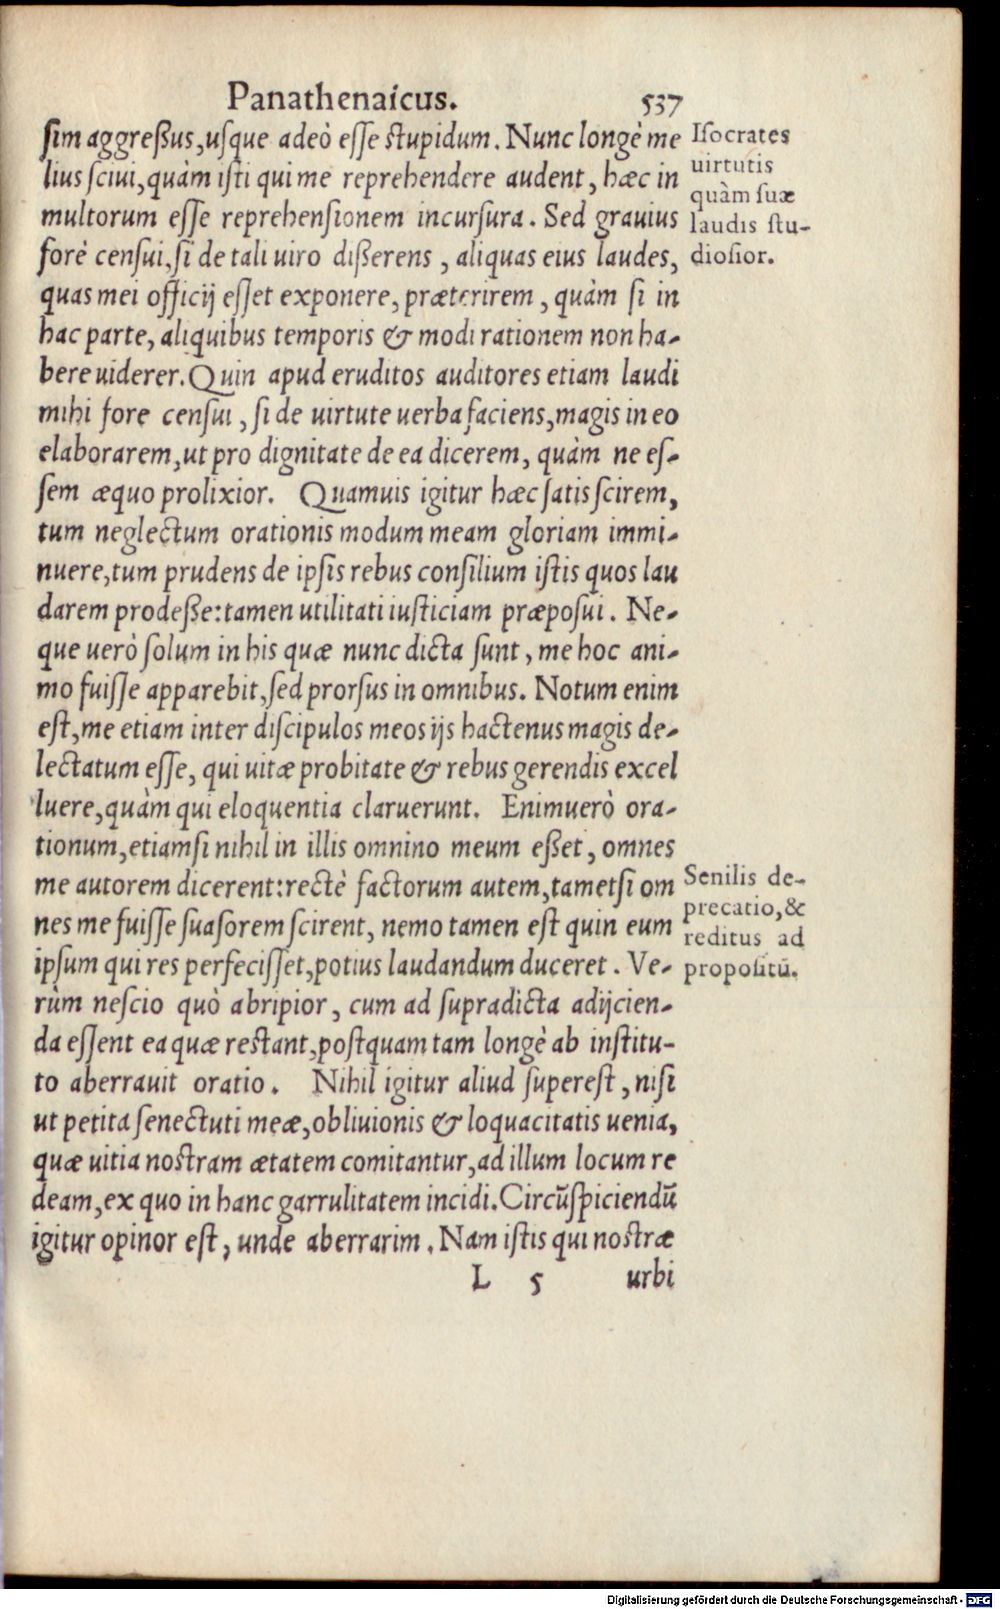 Panathenaicus. 537
ſim aggreßus, uſque adeò eſſe ſtupidum. Nunc longè me
lius ſciui, quàm iſti qui me reprehendere audent, hæc in
multorum eſſe reprehenſionem incurſura. Sed grauius
forè cenſui, ſi de tali uiro dißerens, aliquas eius laudes,
quas mei officij eſſet exponere, præterirem, quàm ſi in
hac parte, aliquibus temporis & modi rationem non ha-
bere uiderer. Quin apud eruditos auditores etiam laudi
mihi fore cenſui, ſi de uirtute uerba faciens, magis in eo
elaborarem, ut pro dignitate de ea dicerem, quàm ne eſ-
ſem æquo prolixior. Quamuis igitur hæc ſatis ſcirem,
tum neglectum orationis modum meam gloriam immi-
nuere, tum prudens de ipſis rebus conſilium iſtis quos lau
darem prodeße: tamen utilitati iuſticiam præpoſui. Ne-
que uerò ſolum in his quæ nunc dicta ſunt, me hoc ani-
mo fuiſſe apparebit, ſed prorſus in omnibus. Notum enim
eſt, me etiam inter diſcipulos meos ijs hactenus magis de-
lectatum eſſe, qui uitæ probitate & rebus gerendis excel
luere, quàm qui eloquentia claruerunt. Enimuerò ora-
tionum, etiamſi nihil in illis omnino meum eßet, omnes
me autorem dicerent: rectè factorum autem, tametſi om
nes me fuiſſe ſuaſorem ſcirent, nemo tamen eſt quin eum
ipſum qui res perfeciſſet, potius laudandum duceret. Ve-
rùm neſcio quò abripior, cum ad ſupradicta adijcien-
da eſſent ea quæ reſtant, poſtquam tam longè ab inſtitu-
to aberrauit oratio. Nihil igitur aliud ſupereſt, niſi
ut petita ſenectuti meæ, obliuionis & loquacitatis uenia,
quæ uitia noſtram ætatem comitantur, ad illum locum re
deam, ex quo in hanc garrulitatem incidi. Circũſpiciendũ
igitur opinor eſt, unde aberrarim. Nam iſtis qui noſtræ
L 5 urbi
Iſocrates
uirtutis
quàm ſuæ
laudis ſtu-
dioſior.
Senilis de-
precatio, &
reditus ad
propoſitũ.
Digitalisierung gefördert durch die Deutsche Forschungsgemeinschaft - DFG